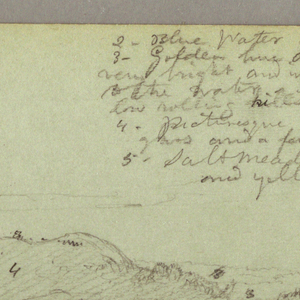 2 - Blue Water
3 - Golden hue
very bright and
to the water
low rolling hills
4 - Picturesque
grass and a
5 - Salt Mead
and yell
3
4
3